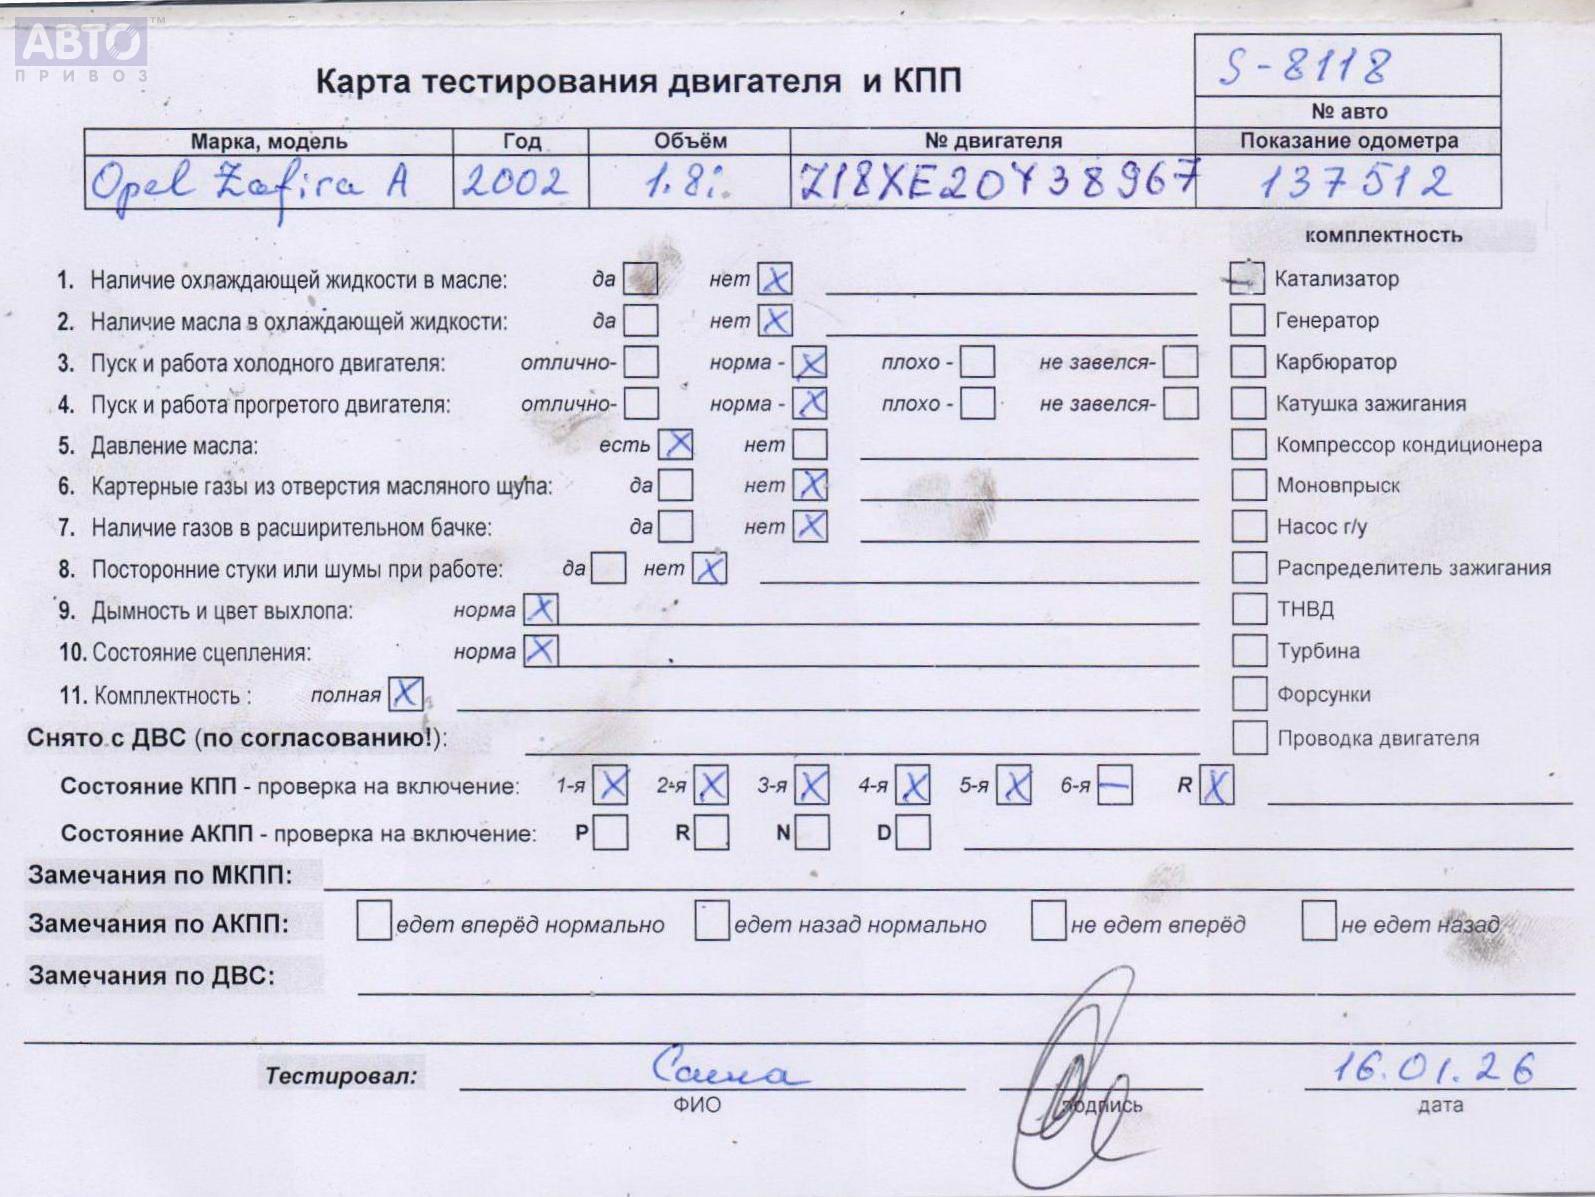 АВТО™
ПРИВОЗ
Карта тестирования двигателя и КПП
S-8118
№ авто
Марка, модель Год Объём № двигателя Показание одометра
Opel Zafira A 2002 1.8i Z18XE20Y38967 137512
комплектность
1. Наличие охлаждающей жидкости в масле: да нет X Катализатор
2. Наличие масла в охлаждающей жидкости: да нет X Генератор
3. Пуск и работа холодного двигателя: отлично- норма - X плохо - не завелся- Карбюратор
4. Пуск и работа прогретого двигателя: отлично- норма - X плохо - не завелся- Катушка зажигания
5. Давление масла: есть X нет Компрессор кондиционера
6. Картерные газы из отверстия масляного щупа: да нет X Моновпрыск
7. Наличие газов в расширительном бачке: да нет X Насос г/у
8. Посторонние стуки или шумы при работе: да нет X Распределитель зажигания
9. Дымность и цвет выхлопа: норма X ТНВД
10. Состояние сцепления: норма X Турбина
11. Комплектность : полная X Форсунки
Снято с ДВС (по согласованию!): Проводка двигателя
Состояние КПП - проверка на включение: 1-я X 2-я X 3-я X 4-я X 5-я X 6-я — R X
Состояние АКПП - проверка на включение: P R N D
Замечания по МКПП:
Замечания по АКПП: едет вперёд нормально едет назад нормально не едет вперёд не едет назад
Замечания по ДВС:
Тестировал: Саша 16.01.26
ФИО подпись дата